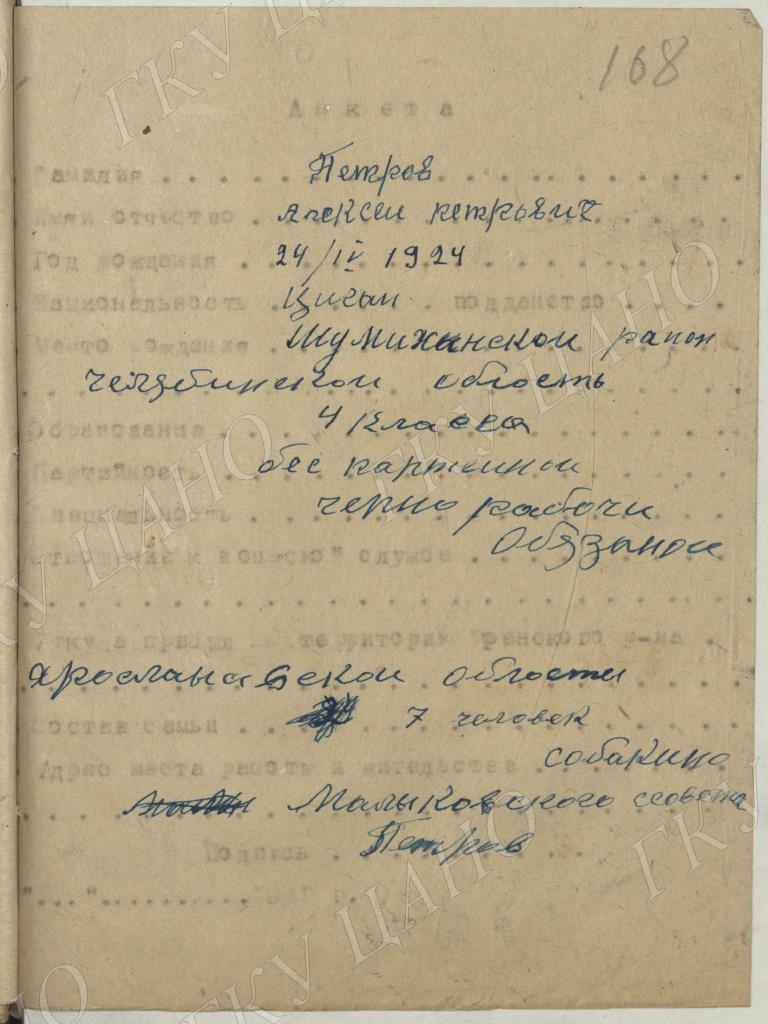 168
Анкета
Фамилия . . . . Петров
Имя и отчество . Алексеи петрьвич
Год рождения . 24/IV 1924
Национальность . Цыган . подданство
Место рождения . Шумихинской рапон
челябинской область
Образование . 4 класса
Партийность . бес партейной
Специальность . черно рабочи
Отношение к воинской службе . Обязаной
Откуда прибыл на территорию р-на
Ярослававской области
Состав семьи . 7 человек
Адрес места работы и жительства . собакино
Малыковского совета
Подпись . Петров
"..."..........г.
ГКУ ЦАНО